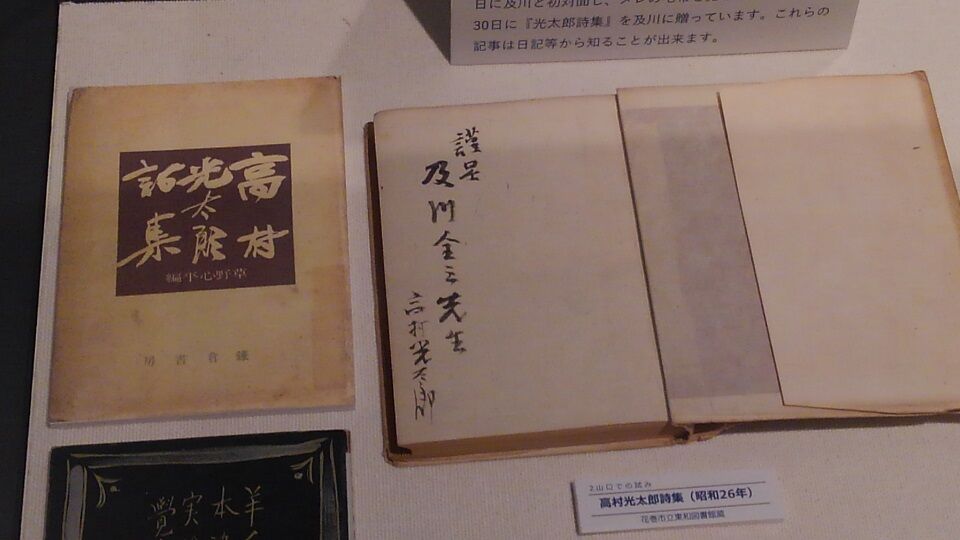 30日に『光太郎詩集』を及川に贈っています。これらの
記事は日記等から知ることが出来ます。
高村
光太郎
詩集
草野心平編
鎌倉書房
謹呈
及川全三先生
高村光太郎
2山口での試み
高村光太郎詩集（昭和26年）
花巻市立東和図書館蔵